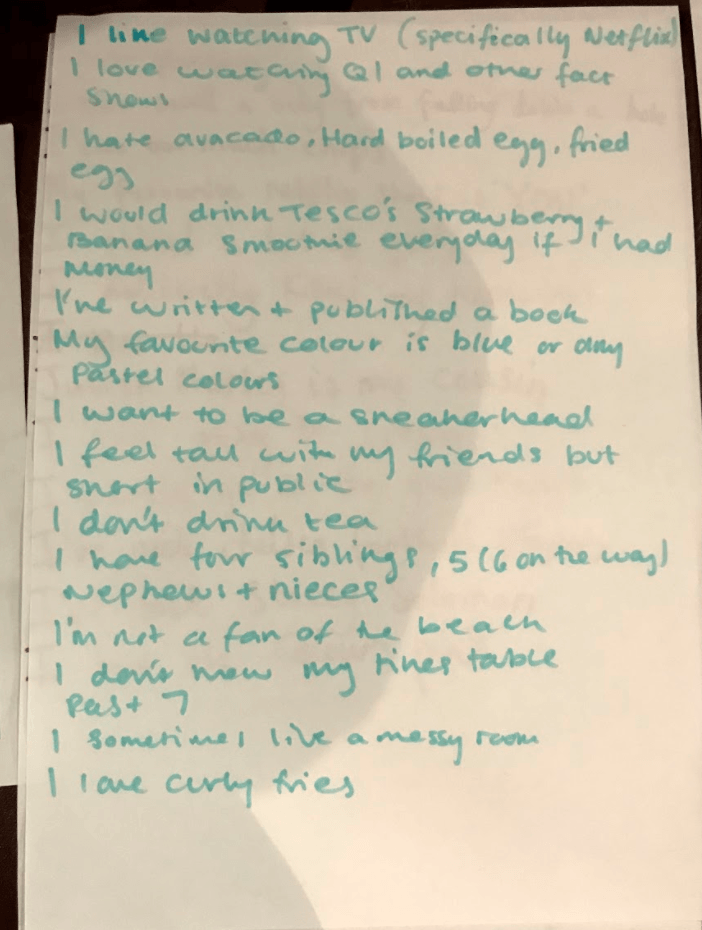 I like watching TV (specifically Netflix)
I love watching QI and other fact
shows
I hate avacado, Hard boiled egg, fried
egg
I would drink Tesco's Strawberry +
Banana smoothie everyday if I had
money
I've written + published a book
My favourite colour is blue or any
pastel colours
I want to be a sneakerhead
I feel tall with my friends but
short in public
I don't drink tea
I have four siblings, 5 (6 on the way)
Nephews + nieces
I'm not a fan of the beach
I don't know my times table
past 7
I sometimes like a messy room
I love curly fries